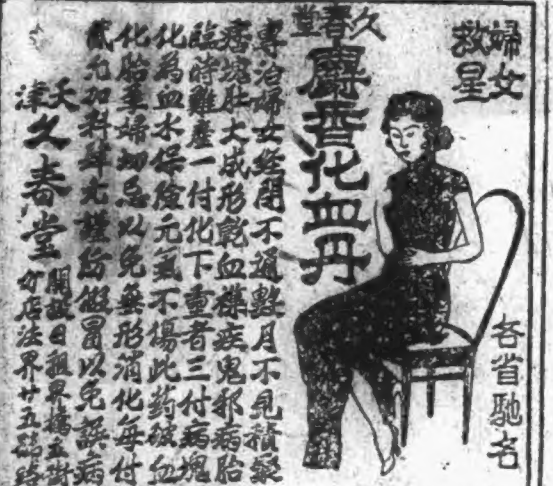 婦女
救星
各省馳名
久春堂
麝香化血丹
專治婦女經閉不通數月不見積聚
痞塊肚大成形乾血癆疾鬼邪病胎
臨時難產一付化下重者三付病塊
化為血水保險元氣不傷此藥破血
化胎孕婦切忌以免無形消化每付
貳元加料肆元謹防假冒以免誤病
天津
久春堂
開設日租界橋立街
分店法界廿五號路